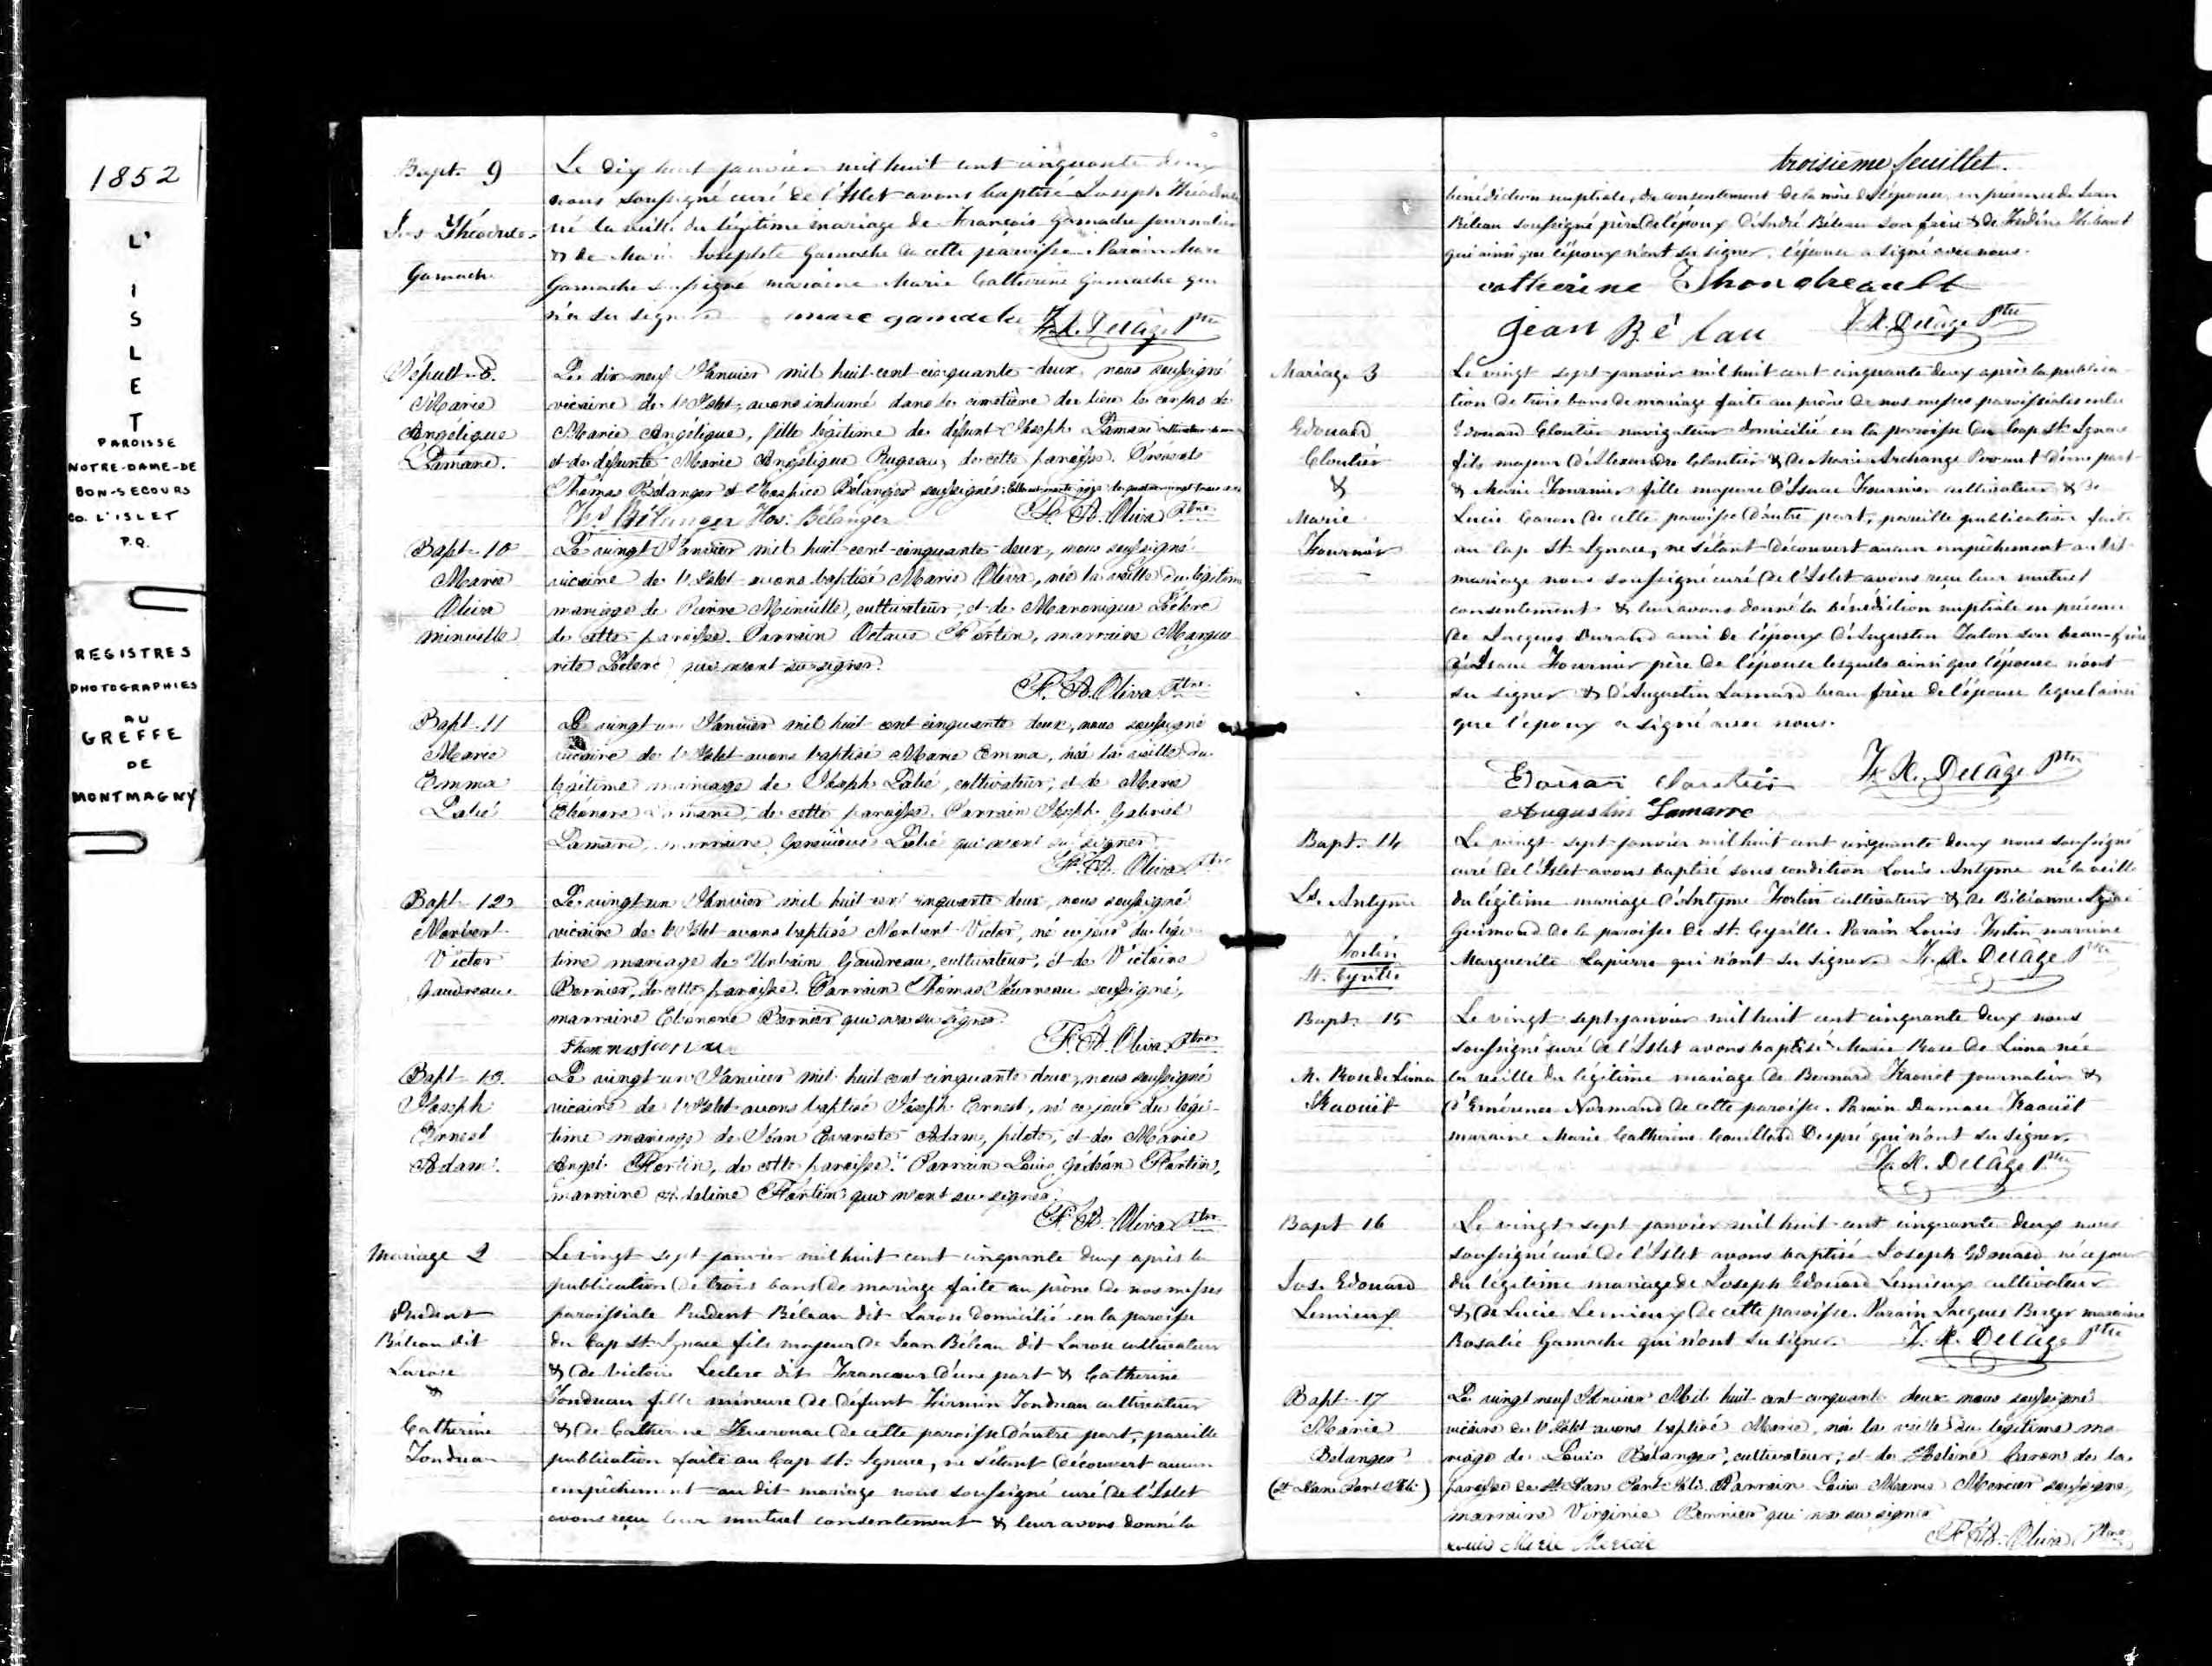 1852
L'
I
S
L
E
T
PAROISSE
NOTRE-DAME-DE
BON-SECOURS
CO. L'ISLET
P.Q.
REGISTRES
PHOTOGRAPHIES
AU
GREFFE
DE
MONTMAGNY
Bapt. 9
Jos Théodule
Gamache
Le dix huit janvier mil huit cent cinquante deux
nous soussigné curé de l'Islet avons baptisé Joseph Théodule
né la veille du légitime mariage de François Gamache journalier
& de Marie Josephte Gamache de cette paroisse. Parain Marc
Gamache soussigné maraine Marie Catherine Gamache qui
n'a su signer
marc gamache F. X. Delâge Ptre
Sépult. 8.
Marie
Angélique
Lamarre.
Le dix neuf Janvier mil huit-cent-cinquante-deux, nous soussigné
vicaire de l'Islet, avons inhumé dans le cimetière du lieu le corps de
Marie Angélique, fille légitime de défunt Joseph Lamarre
et de défunte Marie Angélique Rugeau, de cette paroisse. Présents
Thomas Bélanger et Hospice Bélanger soussignés.
Ths Bélanger Hos. Bélanger F. A. Oliva Ptre
Bapt. 10
Marie
Oliva
Minville
Le vingt Janvier mil huit-cent-cinquante-deux, nous soussigné
vicaire de l'Islet avons baptisé Marie Oliva, née la veille du légitime
mariage de Pierre Minville, cultivateur, et de Maronique Leclerc
de cette paroisse. Parrain Octave Fortin, marraine Margue
rite Leclerc qui n'ont su signer.
F. A. Oliva Ptre
Bapt. 11
Marie
Emma
Lalié
Le vingt-un Janvier mil huit-cent cinquante deux, nous soussigné
vicaire de l'Islet avons baptisé Marie Emma, née la veille du
légitime mariage de Joseph Lalié, cultivateur, et de Marie
Eléonore Lamarre, de cette paroisse. Parrain Joseph Gabriel
Lamarre, marraine Geneviève Lalié qui n'ont su signer.
F. A. Oliva Ptre
Bapt. 12
Norbert
Victor
Gaudreau.
Le vingt-un Janvier mil huit cent cinquante deux, nous soussigné
vicaire de l'Islet avons baptisé Norbert-Victor, né ce jour du légi-
time mariage de Urbain Gaudreau, cultivateur, et de Victoire
Bernier, de cette paroisse. Parrain Thomas Fourneau soussigné,
marraine Eléonore Bernier qui n'a su signer.
F. A. Oliva Ptre
Bapt. 13.
Joseph
Ernest
Adam.
Le vingt-un Janvier mil huit cent cinquante deux, nous soussigné
vicaire de l'Islet avons baptisé Joseph Ernest, né ce jour du légi-
time mariage de Jean Evariste Adam, pilote, et de Marie
Angel. Fortin, de cette paroisse. Parrain Louis Gédéon Fortin,
marraine Adeline Fortin qui n'ont su signer.
F. A. Oliva Ptre
Mariage 2
Prudent
Béleau dit
Larose
&
Catherine
Tondreau
Le vingt sept janvier mil huit cent cinquante deux après la
publication de trois bans de mariage faite au prône de nos messes
paroissiale Prudent Béleau dit Larose domicilié en la paroisse
du Cap St. Ignace fils majeur de Jean Béleau dit Larose cultivateur
& de Victoire Leclerc dit Francoeur d'une part & Catherine
Tondreau fille mineure de défunt Firmin Tondreau cultivateur
& de Catherine de cette paroisse d'autre part, pareille
publication faite au Cap St. Ignace, ne s'étant découvert aucun
empêchement au dit mariage nous soussigné curé de l'Islet
avons reçu leur mutuel consentement & leur avons donné la
troisième feuillet.
bénédiction nuptiale, du consentement de la mère de l'épouse, en présence de Jean
Béleau soussigné père de l'époux d'André Béleau son frère & de
qui ainsi que l'époux n'ont su signer. l'épouse a signé avec nous.
catherine Thondreault
Jean Bélau F. X. Delâge Ptre
Mariage 3
Edouard
Cloutier
&
Marie
Fournier
Le vingt sept janvier mil huit cent cinquante deux après la publica-
tion de trois bans de mariage faite au prône de nos messes paroissiales entre
Edouard Cloutier navigateur domicilié en la paroisse du Cap St. Ignace
fils majeur d'Alexandre Cloutier & de Marie Archange d'une part
& Marie Fournier fille majeure d'Isaac Fournier cultivateur & de
Lucie Caron de cette paroisse d'autre part, pareille publication faite
au Cap St. Ignace, ne s'étant découvert aucun empêchement au dit
mariage nous soussigné curé de l'Islet avons reçu leur mutuel
consentement & leur avons donné la bénédiction nuptiale en présence
de Jacques Durand ami de l'époux d'Augustin Talon son beau-frère
d'Isaac Fournier père de l'épouse lesquels ainsi que l'épouse n'ont
su signer & d'Augustin Lamarre beau frère de l'épouse lequel ainsi
que l'époux a signé avec nous.
F. X. Delâge Ptre
Augustin Lamarre
Bapt. 14
Ls. Antyme
Fortin
St. Cyrille
Le vingt sept janvier mil huit cent cinquante deux nous soussigné
curé de l'Islet avons baptisé sous condition Louis Antyme né la veille
du légitime mariage d'Antyme Fortin cultivateur & de Bibianne
Guimond de la paroisse de St. Cyrille. Parain Louis Fortin maraine
Marguerite Lapierre qui n'ont su signer. F. X. Delâge Ptre
Bapt. 15
M. Rose de Lima
Kaouët
Le vingt sept janvier mil huit cent cinquante deux nous
soussigné curé de l'Islet avons baptisé Marie Rose de Lima née
la veille du légitime mariage de Bernard Kaouet journalier &
d'Emérence Normand de cette paroisse. Parain Damase Kaouët
maraine Marie Catherine Couillard Després qui n'ont su signer.
F. X. Delâge Ptre
Bapt 16
Jos. Edouard
Lemieux
Le vingt sept janvier mil huit cent cinquante deux nous
soussigné curé de l'Islet avons baptisé Joseph Edouard né ce jour
du légitime mariage de Joseph Edouard Lemieux cultivateur
& de Lucie Lemieux de cette paroisse. Parain Jacques Berger maraine
Rosalie Gamache qui n'ont su signer. F. X. Delâge Ptre
Bapt. 17
Marie
Belanger
(St Jean Port Joli)
Le vingt neuf Janvier Mil huit cent cinquante deux nous soussigné
vicaire de l'Islet avons baptisé Marie, née la veille du légitime ma
riage de Louis Bélanger, cultivateur, et de Heline Caron de la
paroisse de St Jean Port-Joli. Parrain Louis Marie Mercier soussigné,
marraine Virginie Bernier qui n'a su signer
Louis Marie Mercie F. A. Oliva Ptre